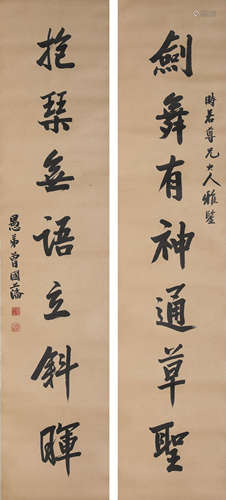 時若尊兄大人雅鑒
劍舞有神通草聖
抱琴無語立斜暉
愚弟曾國藩